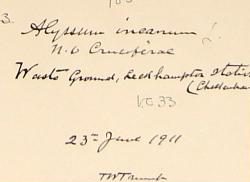 3.
Alyssum incanum L.
N.O Cruciferae
Waste Ground, Leckhampton Station
(Cheltenham
V.C.33
23rd June 1911